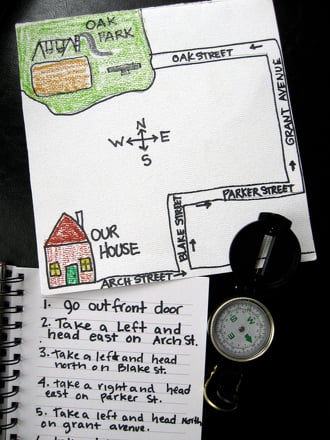 OAK
PARK
OAK STREET
GRANT AVENUE
N
W E
S
PARKER STREET
BLAKE STREET
OUR
HOUSE
ARCH STREET
1. go out front door
2. Take a Left and
head east on Arch St.
3. take a left and head
north on Blake st.
4. take a right and head
east on parker st.
5. Take a left and head North
on grant avenue.